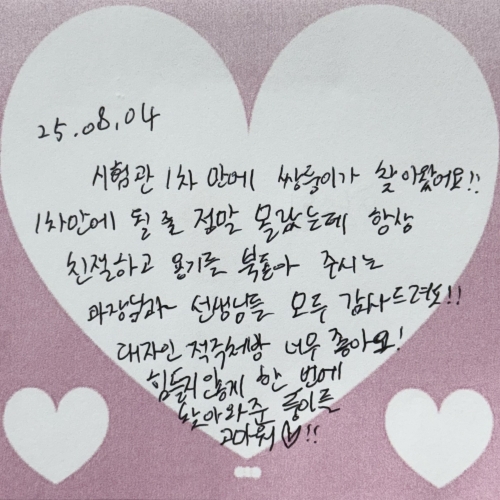 25.08.04
시험관 1차 만에 쌍둥이가 찾아왔어요!!
1차만에 될 줄 정말 몰랐는데 항상
친절하고 용기를 북돋아 주시는
과장님과 선생님들 모두 감사드려요!!
대자인 적극처방 너무 좋아요!
힘들지않게 한 번에
찾아와준 둥이들
고마워♡!!